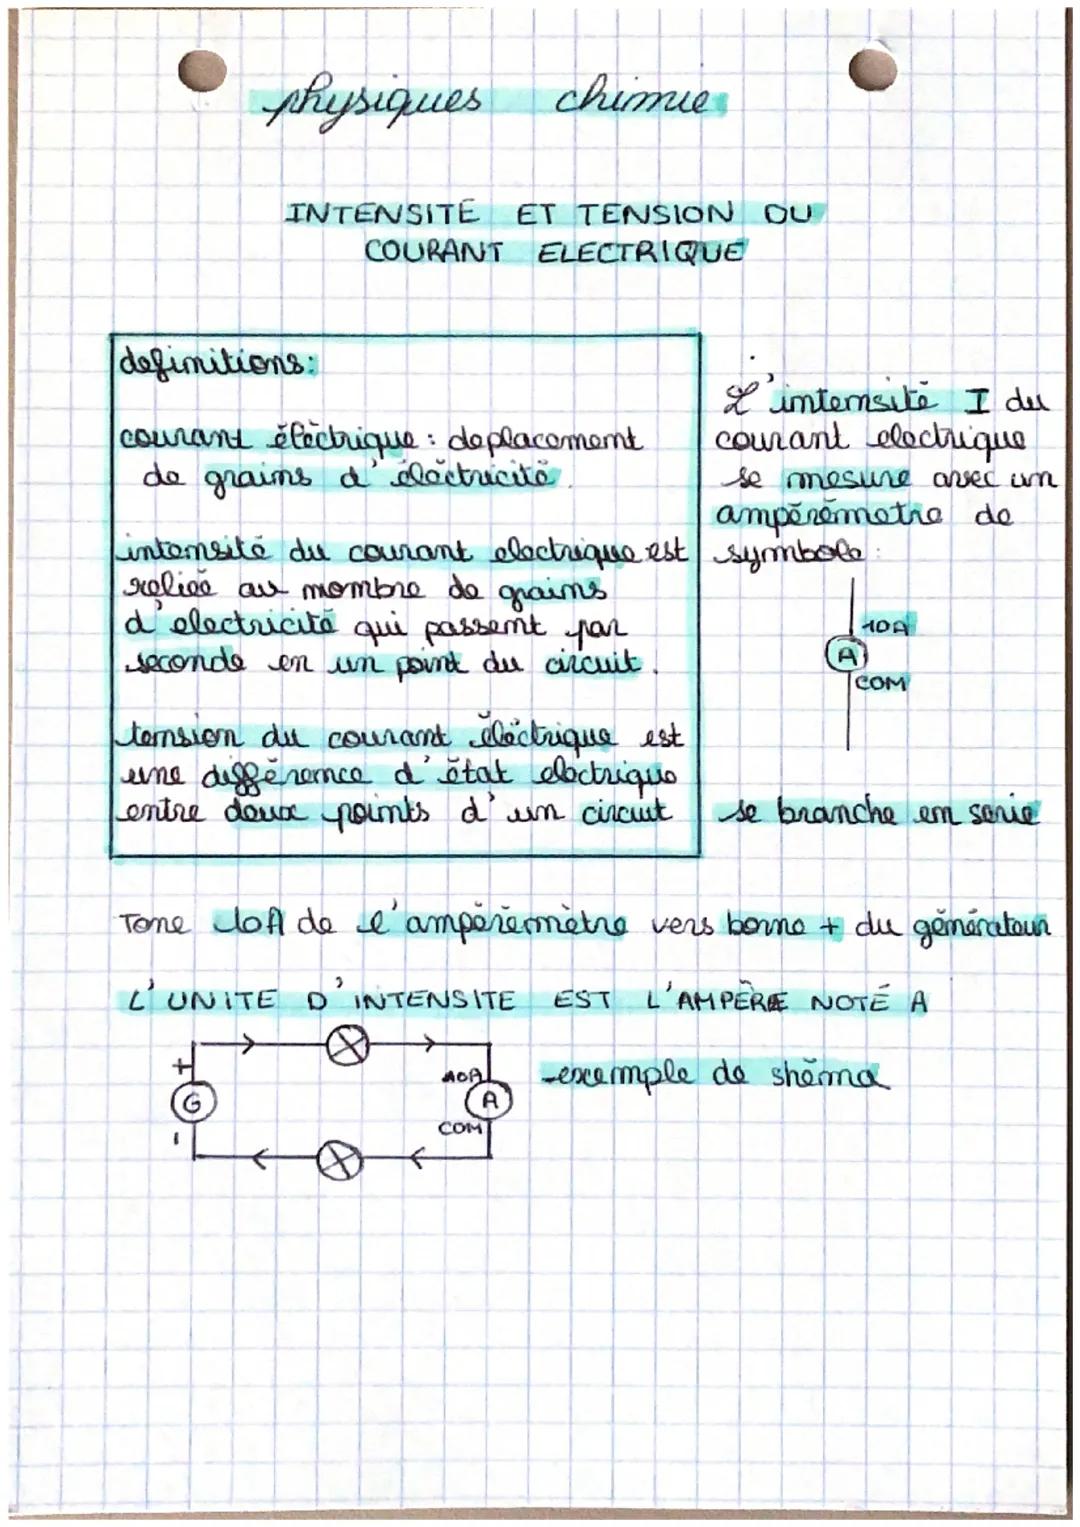 physiques chimie
INTENSITÉ ET TENSION DU
COURANT ELECTRIQUE
definitions:
courant électrique : deplacement
de grains d'électricité.
intensité du courant electrique est
reliée au nombre de grains
d'electricité qui passent par
seconde en un point du circuit.
tension du courant électrique est
une différence d'état electrique
entre deux points d'un circuit
L'intensité I du
courant electrique
se mesure avec un
ampérémetre de
symbole :
10A
A
COM
se branche en serie
10A de l'ampérémètre vers borne + du générateur
L'UNITE D'INTENSITE EST L'AMPÈRE NOTÉ A
+
10A
G
A
COM
-
-exemple de shéma